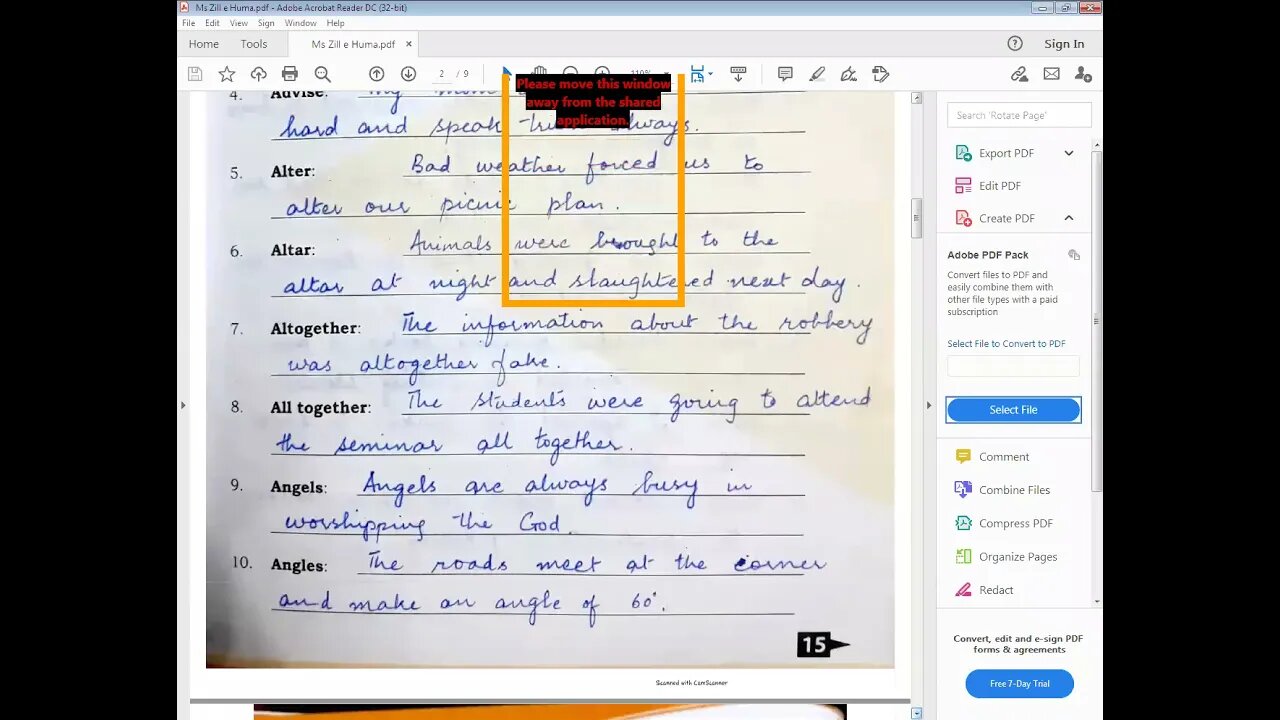 Ms Zill e Huma.pdf - Adobe Acrobat Reader DC (32-bit)
File Edit View Sign Window Help
Home Tools Ms Zill e Huma.pdf × Sign In
2 / 9
Please move this window
away from the shared
application.
4. Advise: My
hard and speak always.
5. Alter: Bad weather forced us to
alter our picnic plan.
6. Altar: Animals were brought to the
altar at night and slaughtered next day.
7. Altogether: The information about the robbery
was altogether fake.
8. All together: The students were going to attend
the seminar all together.
9. Angels: Angels are always busy in
worshipping the God.
10. Angles: The roads meet at the corner
and make an angle of 60°.
15
Scanned with CamScanner
Export PDF
Edit PDF
Create PDF
Adobe PDF Pack
Convert files to PDF and
easily combine them with
other file types with a paid
subscription
Select File to Convert to PDF
Select File
Comment
Combine Files
Compress PDF
Organize Pages
Redact
Convert, edit and e-sign PDF
forms & agreements
Free 7-Day Trial